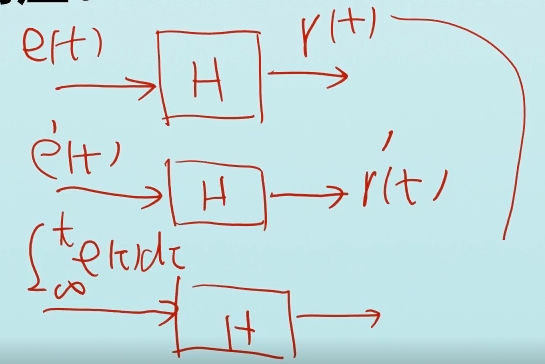 e(t) H r(t)
e'(t) H r'(t)
∫_{-∞}^{t} e(τ)dτ H